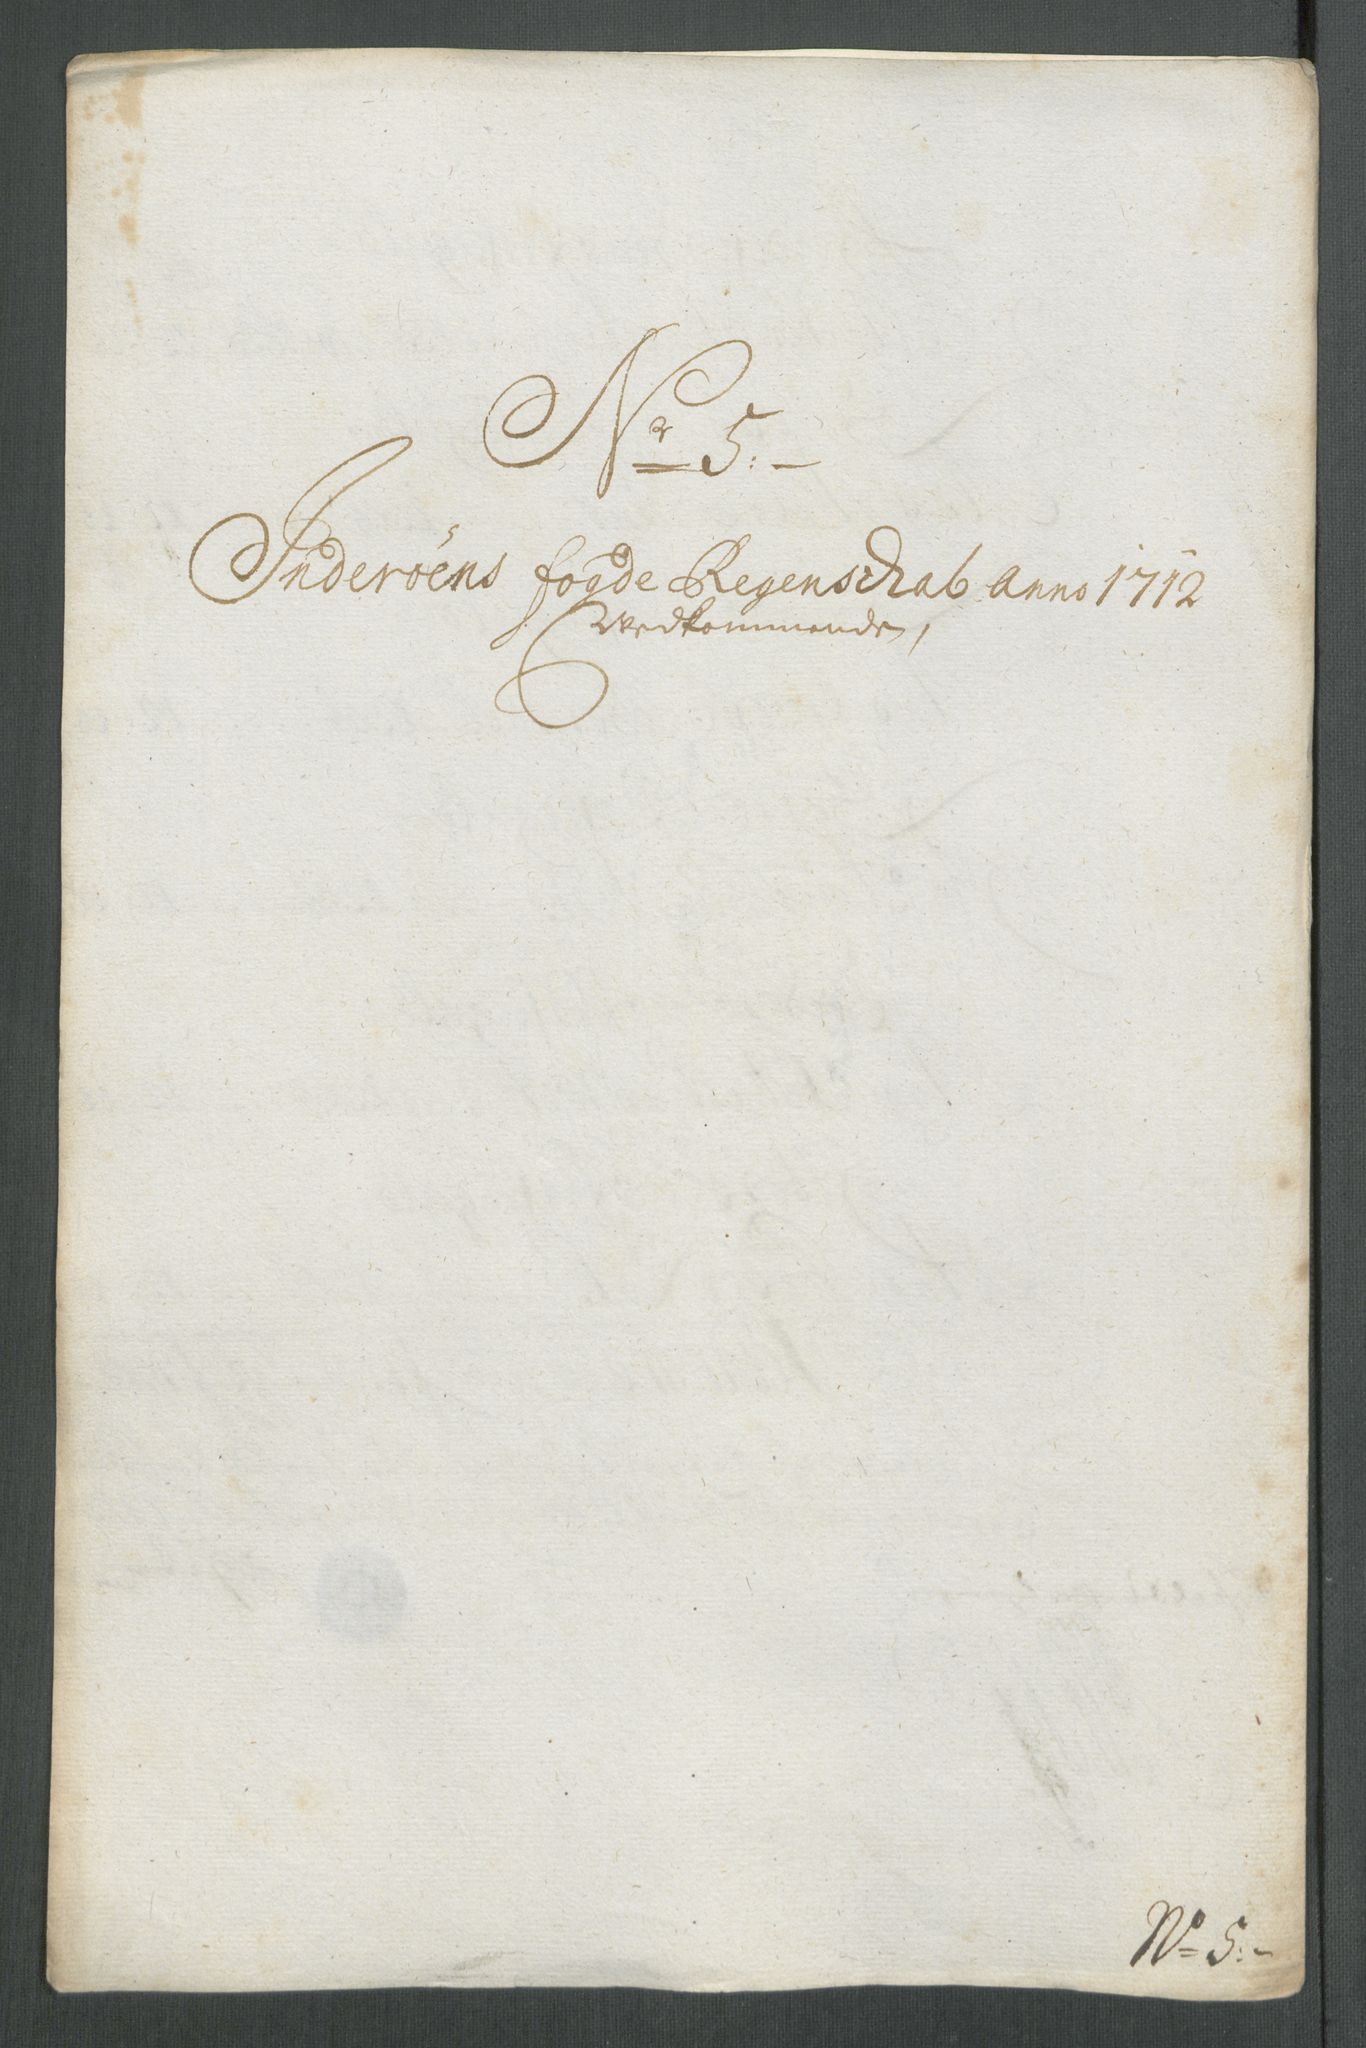 Nr 5.-
Inderöens fogde Regenschab Anno 1712
Vedkommende,
No 5.-